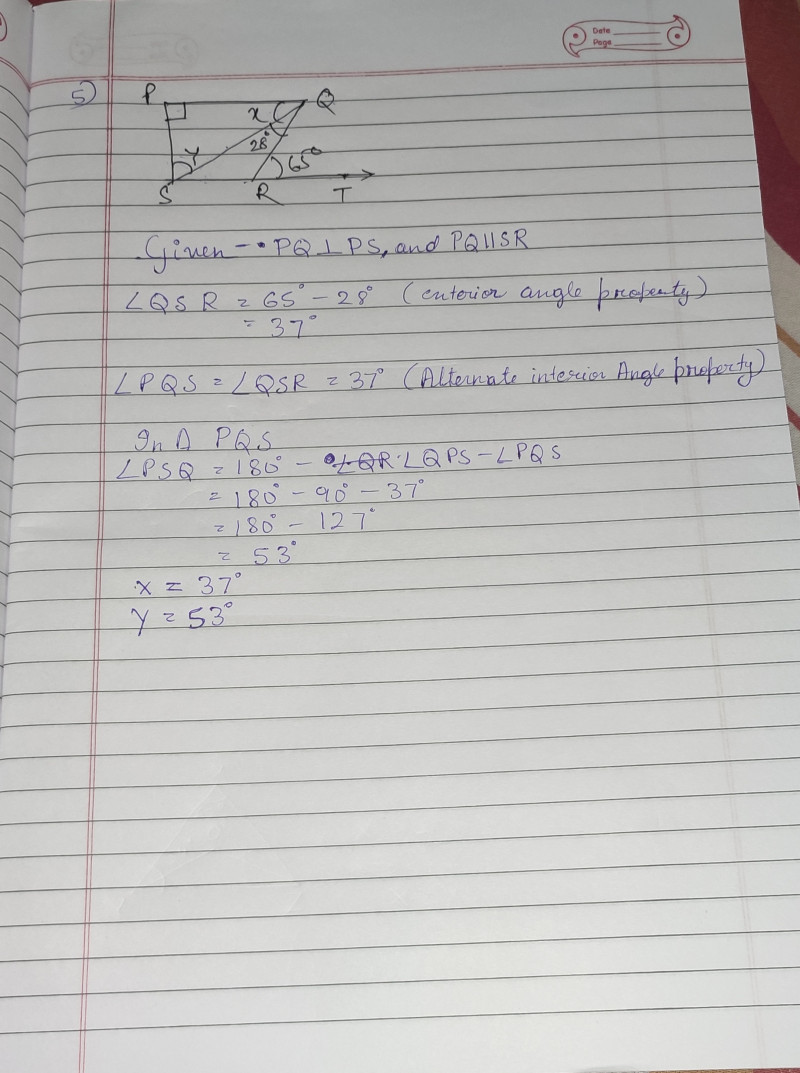 Date
Page
5)
P
Q
x
28°
65°
Y
S
R
T
Given - • PQ ⊥ PS, and PQ || SR
∠QSR = 65° - 28° (enterior angle property)
= 37°
∠PQS = ∠QSR = 37° (Alternate interior Angle property)
In Δ PQS
∠PSQ = 180° - ∠QR ∠QPS - ∠PQS
= 180° - 90° - 37°
= 180° - 127°
= 53°
x = 37°
Y = 53°